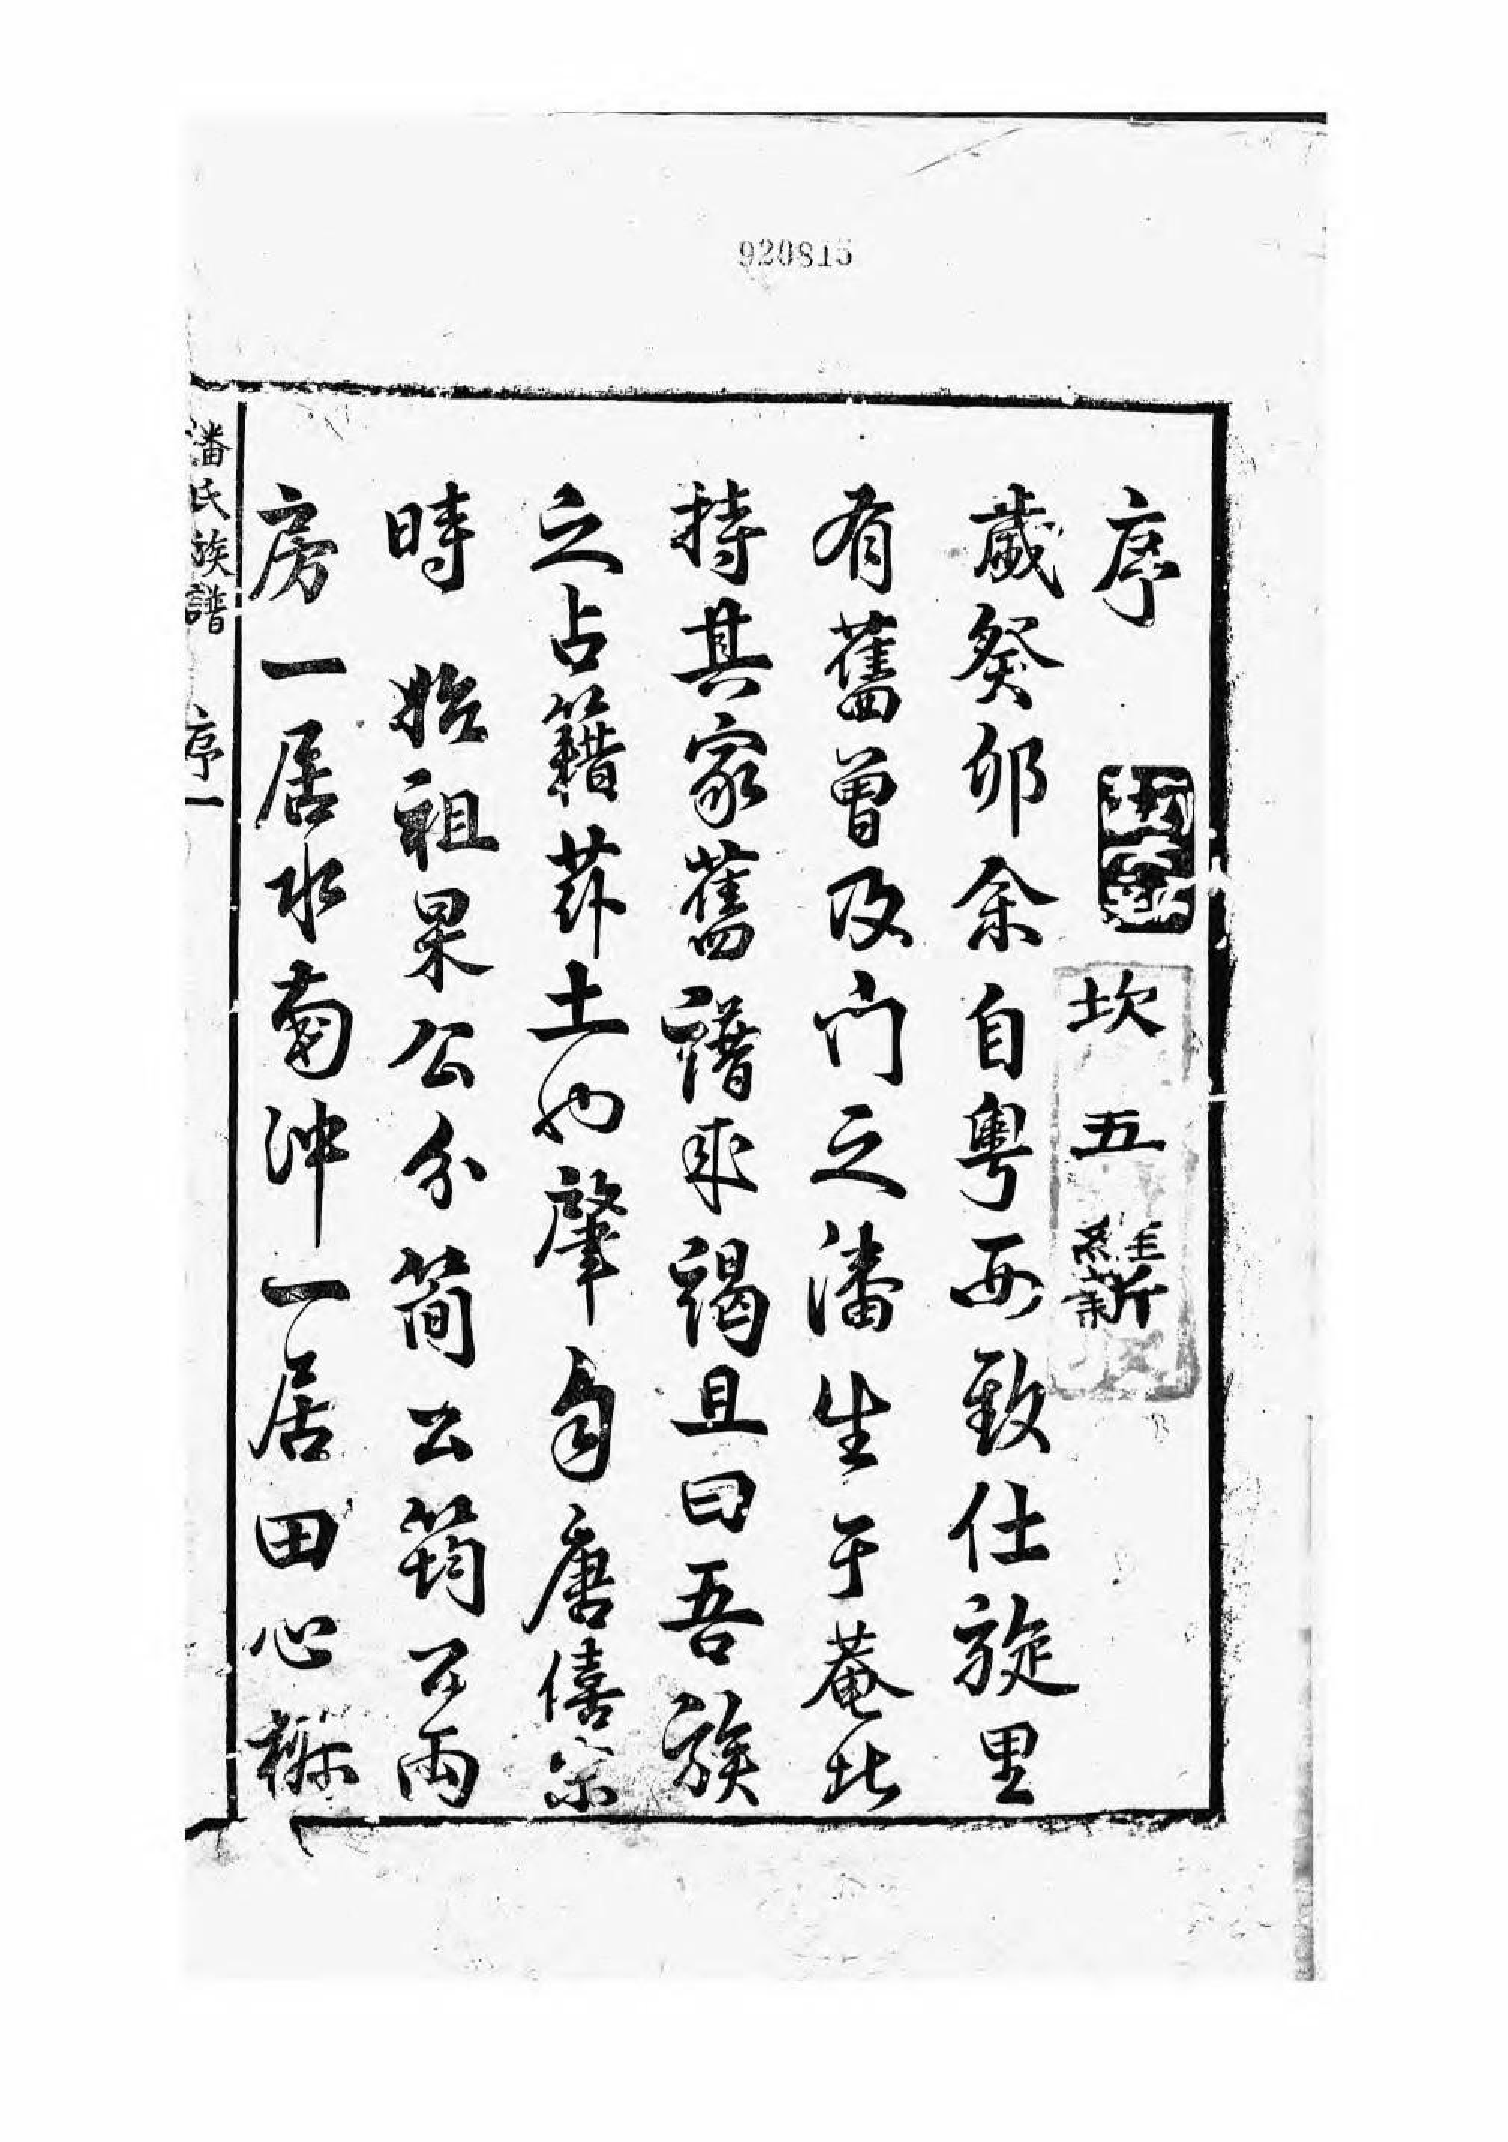 920815
序
坎五
歲癸卯余自粵西致仕旋里
有舊曾及門之潘生于菴北
持其家舊譜來謁且曰吾族
之占籍茲土也肇自唐僖宗
時 始祖果公分简公筠公兩
房一居水南沖一居田心
潘氏族譜 序 一